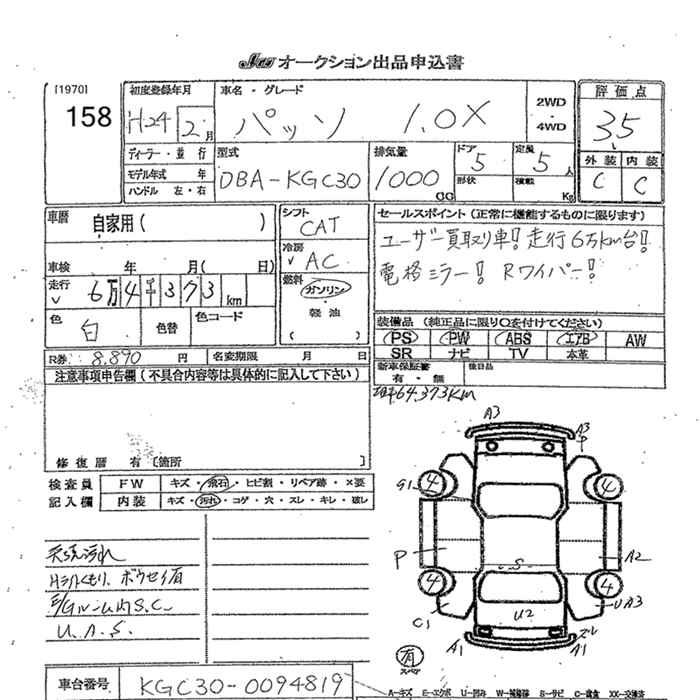 JAA オークション出品申込書
[1970]
158
初度登録年月
H24 2月
車名・グレード
パッソ 1.0X
2WD
・
4WD
評価点
3.5
外装 内装
C C
ディーラー・並行
モデル年式 年
ハンドル 左・右
型式
DBA-KGC30
排気量
1000
CC
ドア
5
形状
定員
5人
積載
Kg
車歴
自家用( )
車検 年 月( 日)
走行
6万4千373km
色
白
色替
色コード
シフト
CAT
冷房
AC
燃料
ガソリン
・
軽油
( )
セールスポイント(正常に機能するものに限ります)
ユーザー買取り車!走行6万km台!
電格ミラー! Rワイパー!
装備品(純正品に限り○を付けてください)
PS PW ABS エアB AW
SR ナビ TV 本革
新車保証書
有・無
後日品
R券 8,890 円
名変期限 月 日
注意事項申告欄(不具合内容等は具体的に記入して下さい)
64,373KM
修復歴 有〔箇所 〕
検査員
記入欄
FW キズ・飛石・ヒビ割・リペア跡・×要
内装 キズ・汚れ・コゲ・穴・スレ・キレ・破レ
天張汚れ
Hライトくもり、ボウセイ有
S.C.
U.A.S.
A3
A3
G1
4
4
P
A2
S
4
4
C1
U2
UA3
A1
ズレ
A1
有
スペア
車台番号
KGC30-0094819
A-キズ E-エクボ U-凹み W-補修跡 S-サビ C-腐食 XX-交換済